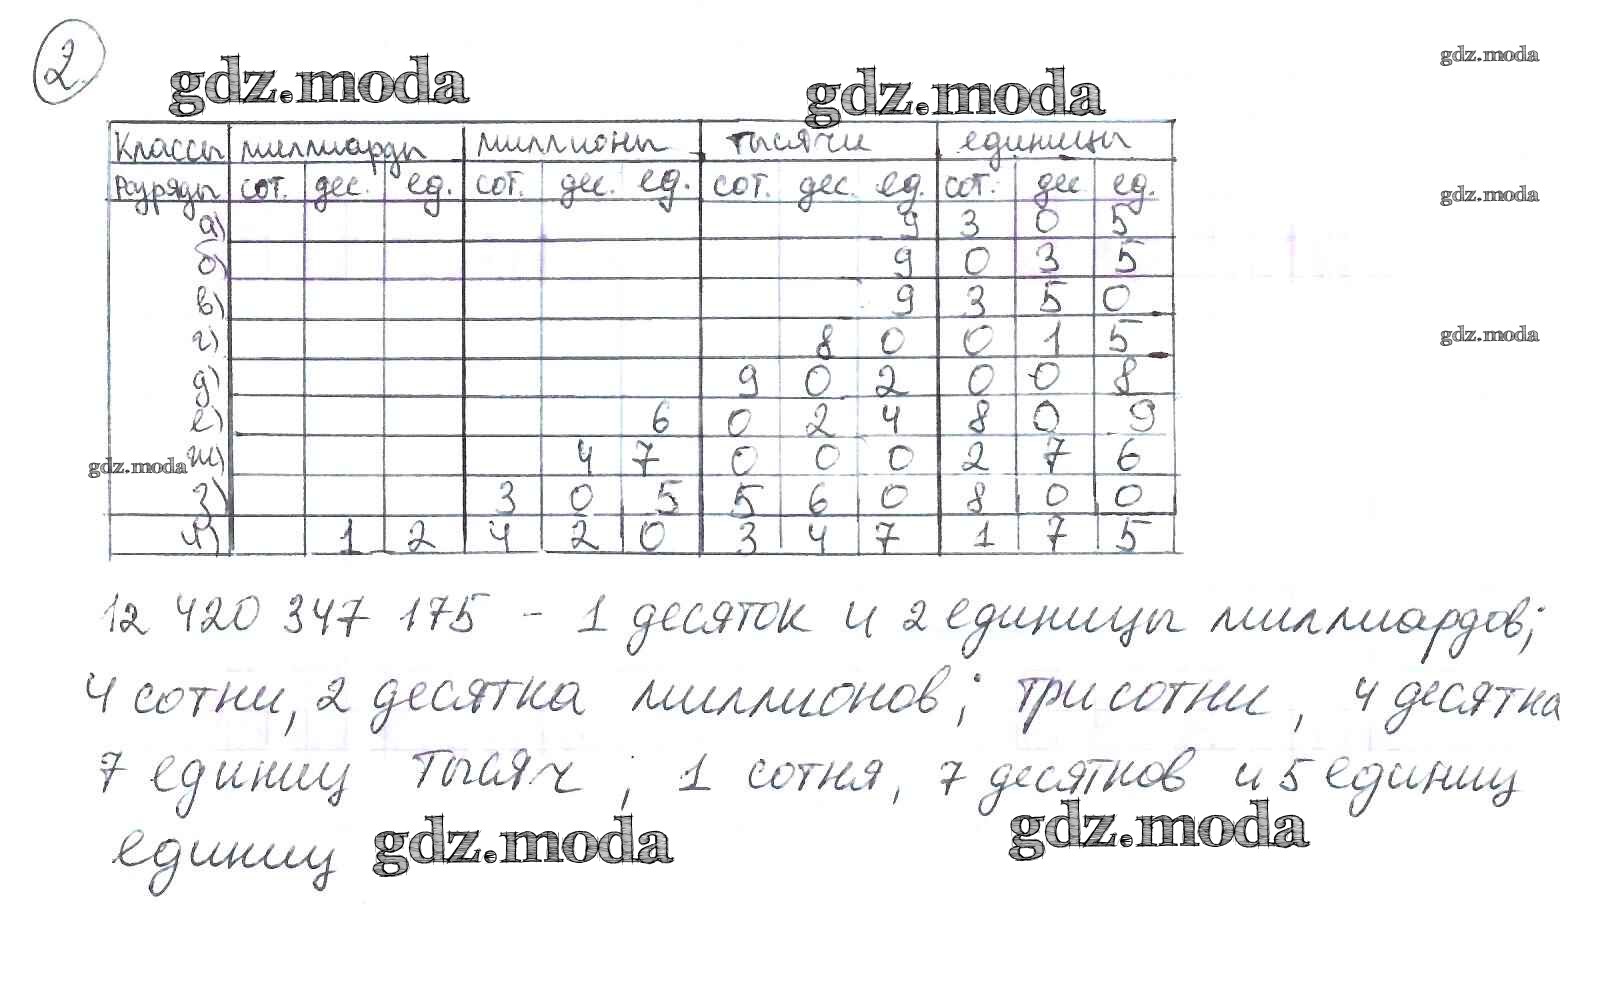 2
gdz.moda gdz.moda gdz.moda
Классы миллиарды миллионы тысячи единицы
Разряды сот. дес. ед. сот. дес. ед. сот. дес. ед. сот. дес ед.
а) 9 3 0 5
gdz.moda
б) 9 0 3 5
в) 9 3 5 0
г) 8 0 0 1 5
gdz.moda
д) 9 0 2 0 0 8
е) 6 0 2 4 8 0 9
ж) 4 7 0 0 0 2 7 6
gdz.moda
з) 3 0 5 5 6 0 8 0 0
и) 1 2 4 2 0 3 4 7 1 7 5
12 420 347 175 - 1 десяток и 2 единицы миллиардов;
4 сотни, 2 десятка миллионов; три сотни, 4 десятка
7 единиц тысяч; 1 сотня, 7 десятков и 5 единиц
единиц
gdz.moda gdz.moda